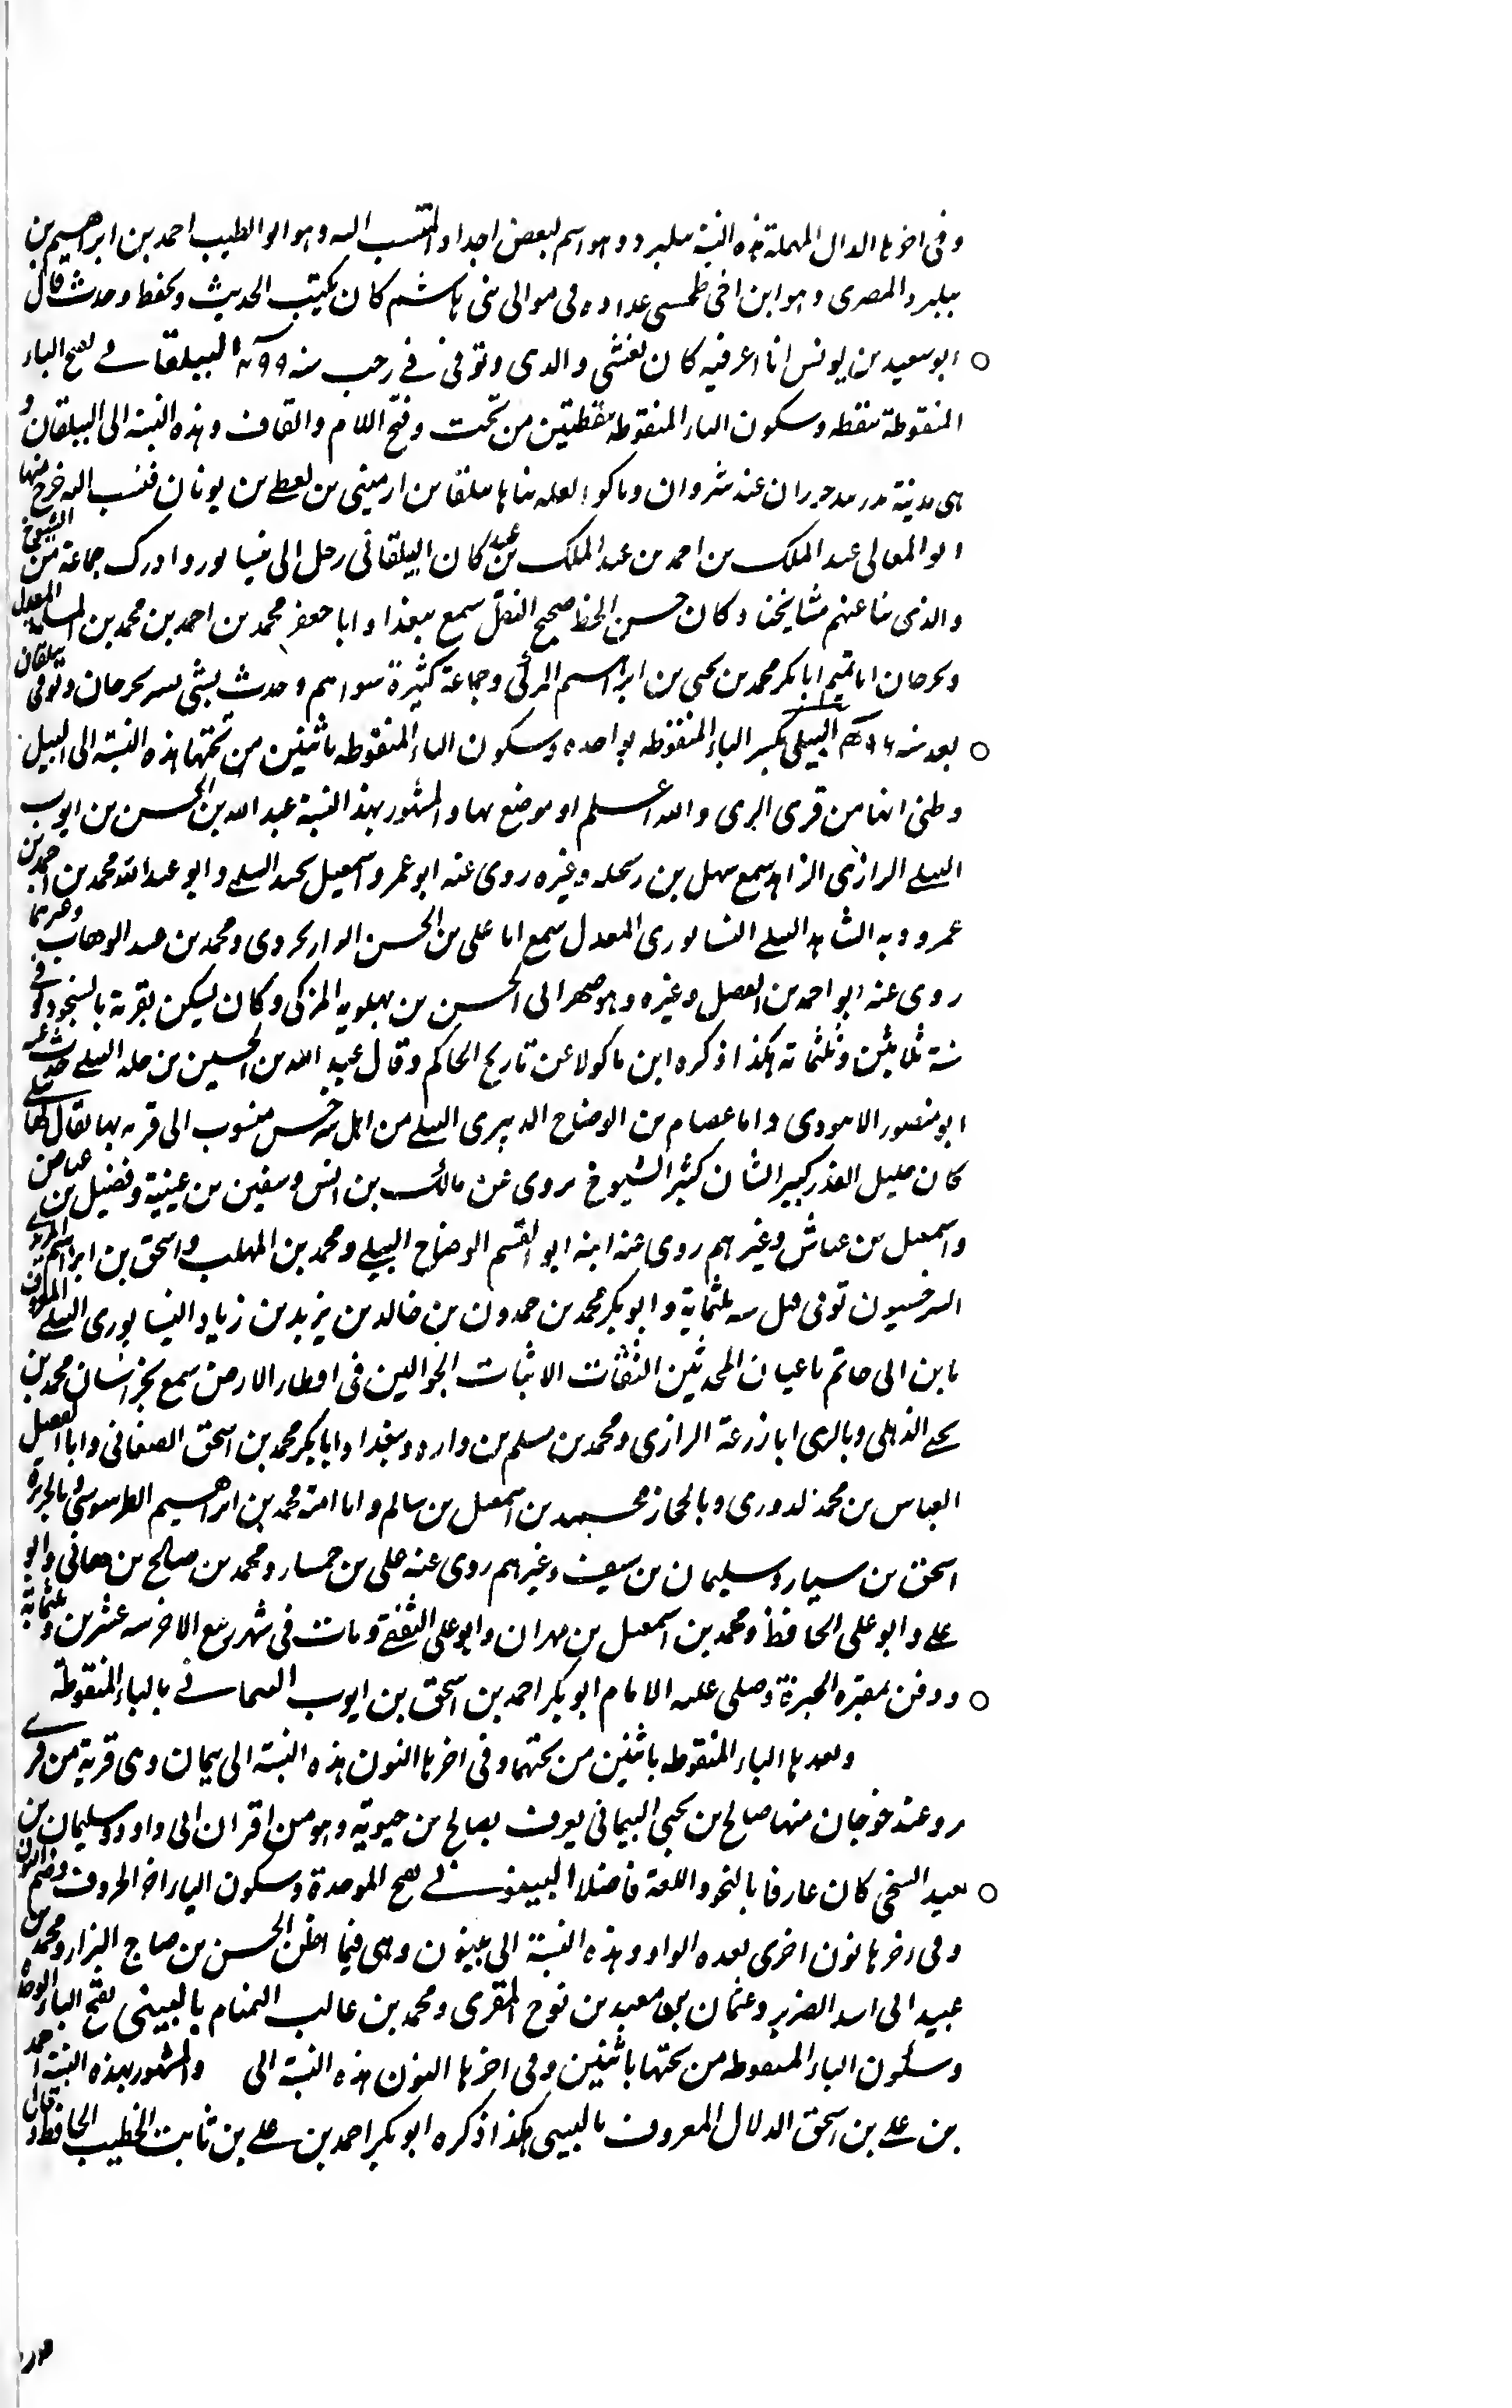 وفى اخرها الدال المهملة هذه النسبة بيلبرد وهو اسم لبعض اجداد المنتسب اليه وهو ابو الطيب احمد بن ابراهيم بن
بيلبرد المصرى وهو ابن اخى طخشى عداده فى موالى بنى هاشم كان يكتب الحديث ويحفظ وحدث قال
ابو سعيد بن يونس انا اعرفه كان يغشى والدى وتوفى فى رجب سنه البيلقانى بفتح الباء
المنقوطة بنقطه وسكون الياء المنقوطه بنقطتين من تحت وفتح اللام والقاف وهذه النسبة الى البيلقان و
هى مدينة عند شروان بناها بيلقان بن ارمينى بن لنطى بن يونان فنسب اليه خرج منها
ابو المعالى عبد الملك بن احمد بن عبد الملك بن عبد كان البيلقانى رحل الى نيسابور وادرك جماعة من الشيوخ
والذى ثنا عنهم مشايخنا وكان حسن الخط صحيح النقل سمع ببغداد ابا جعفر محمد بن احمد بن محمد بن المسلمة المعدل
وبجرجان ابا تميم ابا بكر محمد بن يحيى بن ابراهيم المزكى وجماعة كثيرة سواهم وحدث بشى يسير بجرجان وتوفى ببيلقان
بعد سنه البيلى بكسر الباء المنقوطه بواحده وسكون الياء المنقوطه باثنتين من تحتها هذه النسبة الى البيل
وظنى انها من قرى الرى والله اعلم او موضع بها والمشهور بهذا النسبة عبد الله بن الحسن بن ايوب
البيلى الرازى الزاهد سمع سهل بن زنجله وغيره روى عنه ابو عمرو اسمعيل بن نجيد السلمى وابو عبد الله محمد بن احمد بن
عمرويه الشاهد البيلى النسابورى المعدل سمع ابا على بن الحسن الدارابجردى ومحمد بن عبد الوهاب وغيرهما
روى عنه ابو احمد بن الفضل وغيره وهو صهر ابى الحسن بن بهلويه المزكى وكان يسكن بقرية بالنجود توفى
سنة ثلاثين وثلثمائه هكذا ذكره ابن ماكولا عن تاريخ الحاكم وقال عبيد الله بن الحسين بن البيلى حدث عنه
ابو منصور وابا عصام بن الوضاح الزبيرى البيلى من اهل سرخس منسوب الى قريه بها يقال لها بيل
كان جليل القدر كبير الشان كثير الشيوخ يروى عن مالك بن انس وسفين بن عيينة وفضيل بن عياض
واسمعيل بن عياش وغيرهم روى عنه ابنه ابو القسم الوضاح البيلى ومحمد بن المهلب واسحق بن ابراهيم
السرخسيون توفى قبل سنه ثلثماية وابو بكر محمد بن حمدون بن خالد بن يزيد بن زياد النيسابورى البيلى المعروف
بابن ابى حاتم باعيان المحدثين الثقات الاثبات الجوالين فى اقطار الارض سمع بخراسان محمد بن
يحيى الذهلى وبالرى ابا زرعة الرازى ومحمد بن مسلم بن واره وببغداد ابا بكر محمد بن اسحق الصغانى وابا الفضل
العباس بن محمد الدورى وبالحجاز محمد بن اسمعيل بن سالم وابا امية محمد بن ابراهيم الطرسوسى وبالجزيرة
اسحق بن سيار وسليمان بن سيف وغيرهم روى عنه على بن حمشاد ومحمد بن صالح بن هانى وابو
على وابو على الحافظ ومحمد بن اسمعيل بن مهران وابو على الثقفى ومات فى شهر ربيع الاخر سنه عشرين وثلثماية
ودفن بمقبره الحيرة وصلى عليه الامام ابو بكر احمد بن اسحق بن ايوب البيمانى بالباء المنقوطة
وبعدها الياء المنقوطه باثنتين من تحتها وفى اخرها النون هذه النسبة الى بيمان وهى قرية من قرى
مرو عند خوجان منها صالح بن يحيى البيمانى يعرف بصالح بن حيويه وهو من اقران ابى داود سليمان بن
معبد السنجى كان عارفا بالنحو واللغة فاضلا البينونى بفتح الموحدة وسكون الياء اخر الحروف وضم النون
وفى اخرها نون اخرى بعده الواو وهذه النسبة الى بينون وهى فيما اظن الحسن بن صباح البزار ومحمد بن
عبيد ابى اسد الضرير وعثمان بن معبد بن نوح المقرى ومحمد بن غالب التمتام بالبينى بفتح الباء الموحده
وسكون الياء المنقوطه من تحتها باثنتين وفى اخرها النون هذه النسبة الى والمشهور بهذه النسبة احمد
بن على بن اسحق الدلال المعروف بالبينى هكذا ذكره ابو بكر احمد بن على بن ثابت الخطيب الحافظ وقال